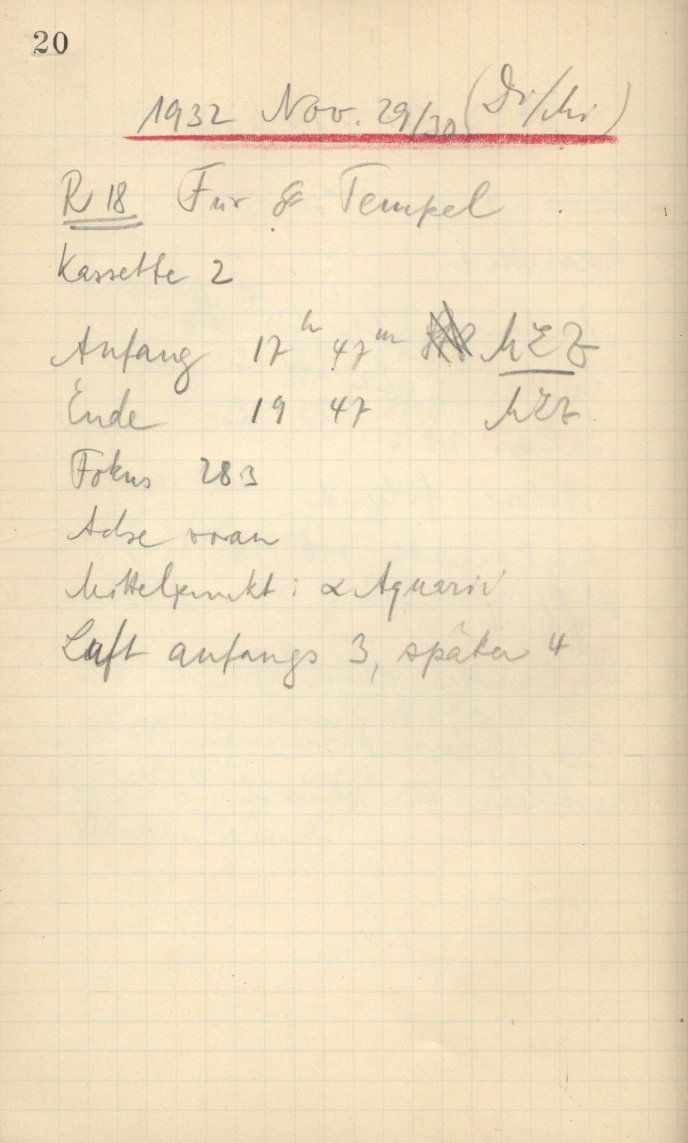 20
1932 Nov. 29/30 (Di/Mi)
R 18 Für Tempel
Kassette 2
Anfang 17h 47m MEZ
Ende 19 47 MEZ
Fokus 283
Achse voran
Mittelpunkt: α Aquarii
Luft anfangs 3, später 4